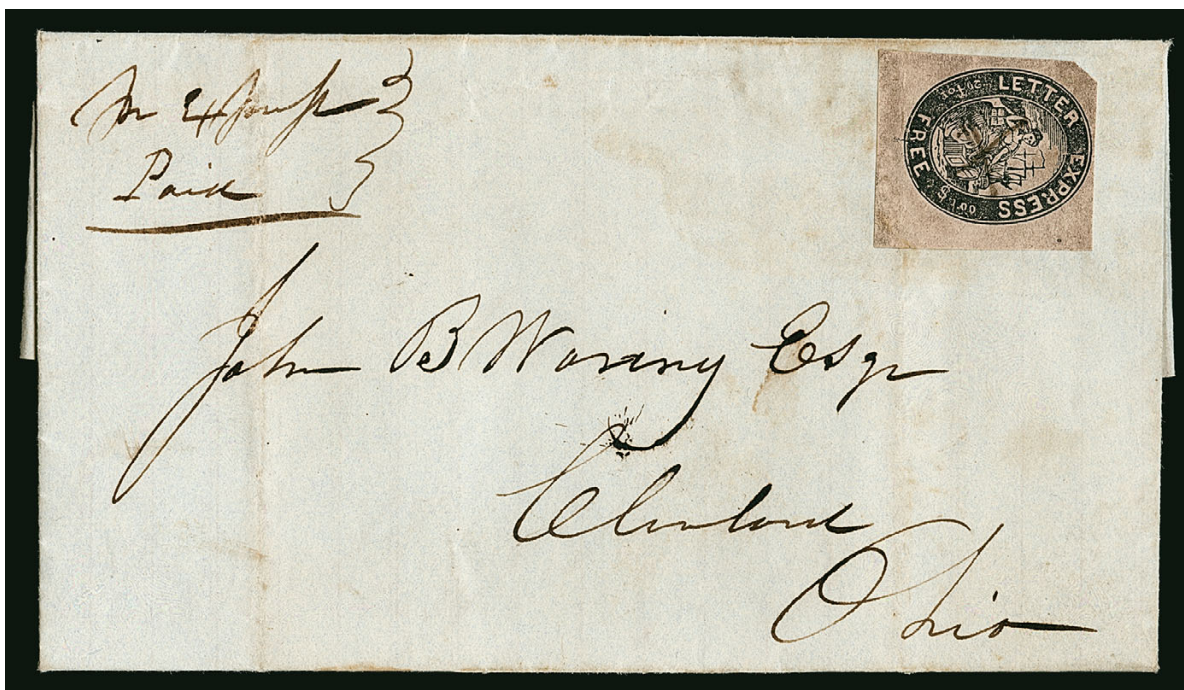 Pr Express
Paid
LETTER EXPRESS
FREE
20 for $1.00
John B Waring Esqr
Cleveland
Ohio